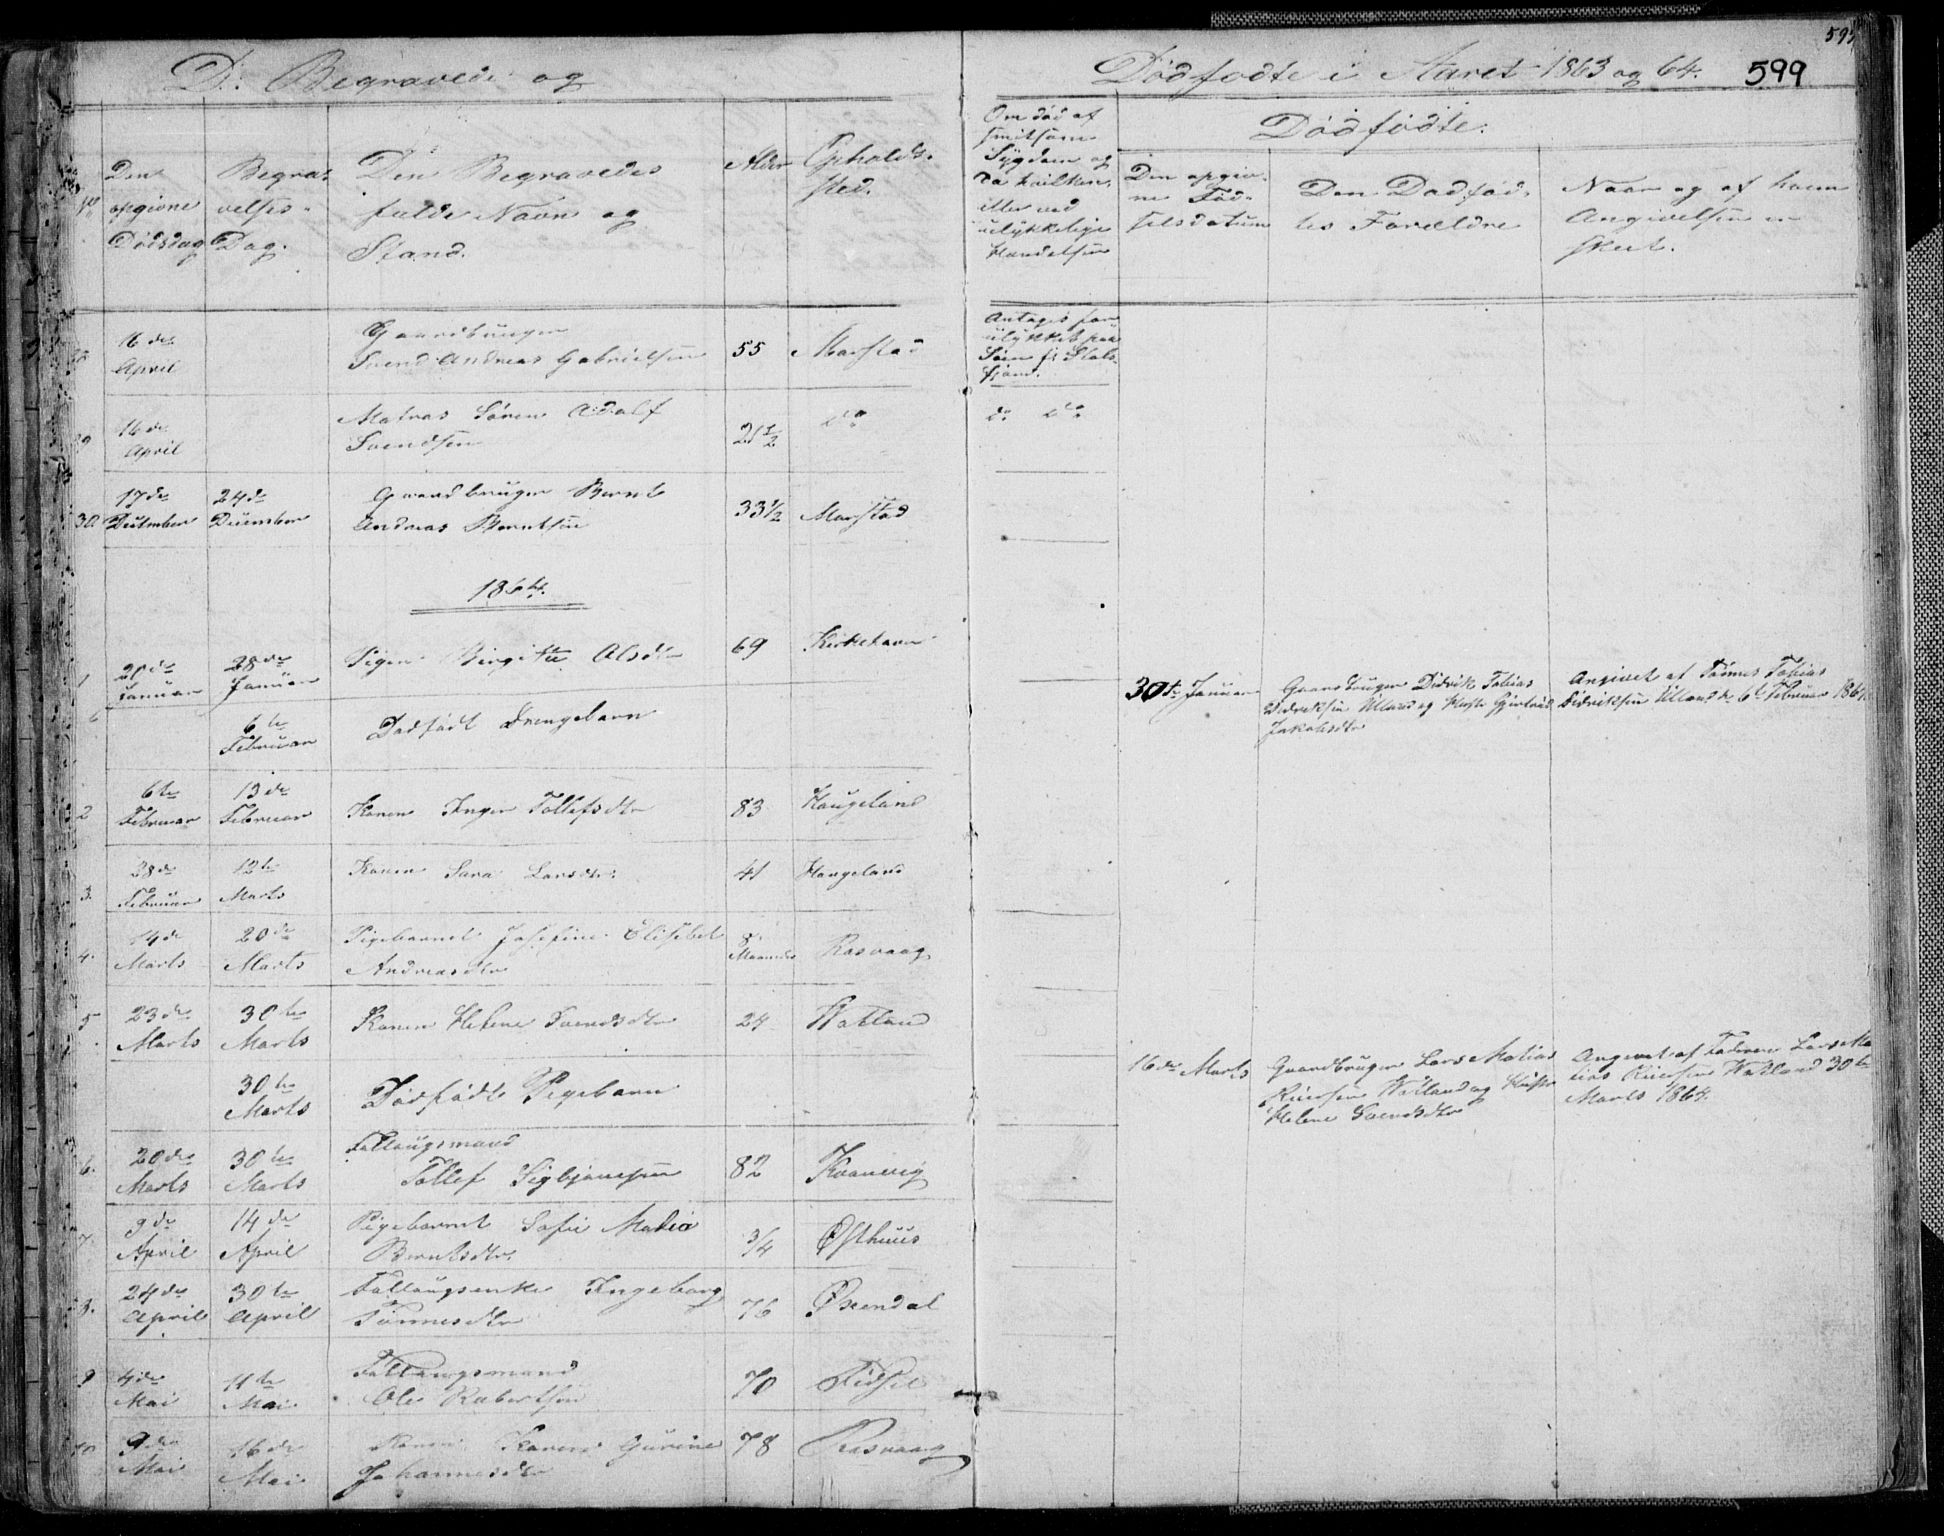 D: Begravede og
Dødfødte i Aaret 1863 og 64.
599
Den
opgivne
Dødsdag
Begra-
velses-
Dag.
Den Begravedes
fulde Navn og
Stand.
Alder
Opholds-
sted.
Om død af
smitsom
Sygdom og
da hvilken,
eller ved
ulykkelige
Hændelser
Dødfødte:
Den opgiv-
ne Fød-
selsdatum
Den Dødfød-
tes Forældre
Naar og af hvem
Angivelsen er
skeet.
16de
April
Gaardbruger
Svend Andreas Gabrielsen
55
Marstad
Antages for-
ulykket paa
Søen
16de
April
Matros Sören Adolf
Svendsen
21 1/2
do
do do
30
17de
December
24de
December
Gaardbruger Bernt
Andreas Berntsen
33 1/2
Marstad
1864.
1
20de
Januar
28de
Januar
Pigen Birgitte Olsdtr
69
Kirkehavn
6te
Februar
Dødfødt Drengebarn
30te Januar
Gaardbruger Didrik Tobias
Didriksen Ulland og Hustr Gjertrud
Jakobsdtr
Angivet af Tønnes Tobias
Didriksen Ulland d. 6te Februar 1864.
2
6te
Februar
13de
Februar
Konen Inger Tollefsdtr
83
Haugeland
3.
28de
Februar
12te
Marts
Konen Sara Larsdtr.
41
Haugeland
4.
14de
Marts
20de
Marts
Pigebarnet Josefine Elisebet
Andreasdtr
8
Maaneder
Rasvaag
5
23de
Marts
30te
Marts
Konen Helene Svendsdtr
24
Watland
30te
Marts
Dødfødt Pigebarn
16de Marts
Gaardbruger Lars Matias
Reiersen Watland og Hustr
Helene Svendsdtr
Angivet af Faderen Lars Ma
tias Reiersen Watland 30te
Marts 1864.
6.
20de
Marts
30te
Marts
Fattigmand
Tollef Sigbjørnsen
82
Kvanvig
7.
9de
April
14de
April
Pigebarnet Sofie Maria
Berntsdtr.
3/4
Østhuus
8.
24de
April
30te
April
Ingeborg
Tönnesdtr
76
Øxendal
9
4de
Mai
11te
Mai
Ole Robertsen
70
Fidsel
10
9de
Mai
16de
Mai
Konen Karen Gurine
Johannesdtr
78
Rasvaag